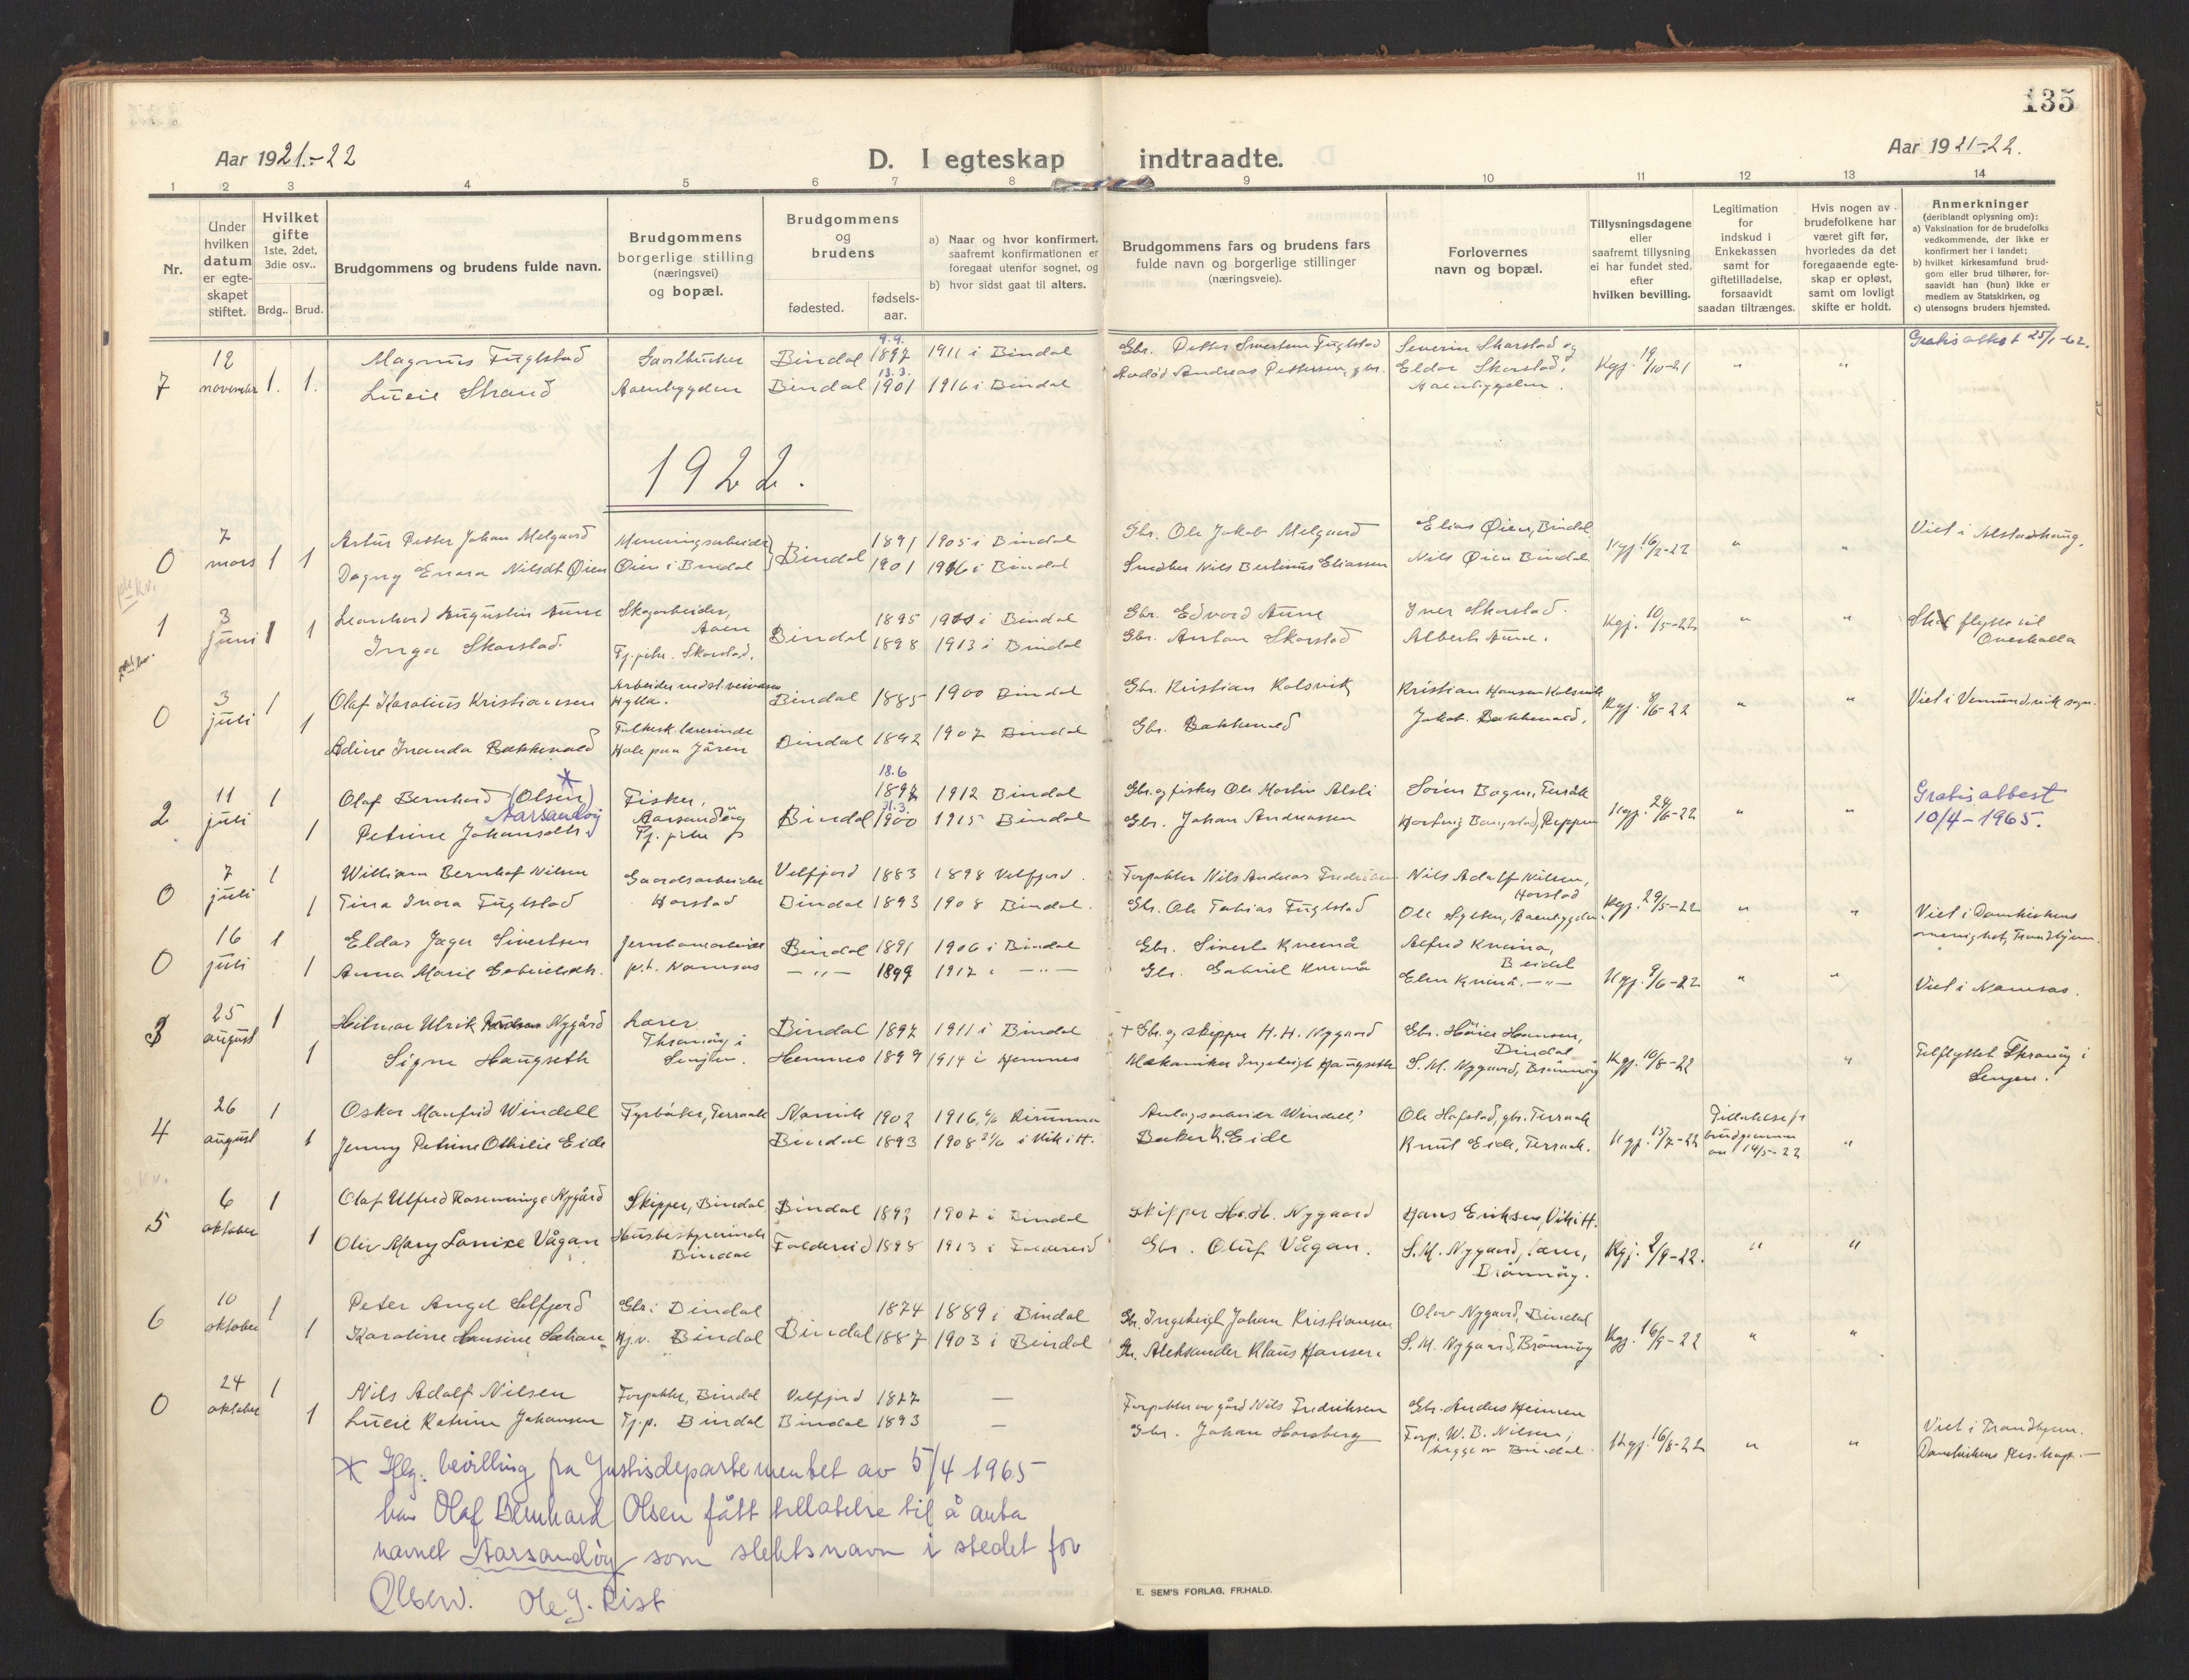 135
Aar 1921.-22
D. I egteskap indtraadte.
Aar 1921-22.
1 2 3 4 5 6 7 8 9 10 11 12 13 14
Nr.
Under hvilken datum er egteskapet stiftet.
Hvilket gifte 1ste, 2det, 3die osv..
Brdg.. Brud.
Brudgommens og brudens fulde navn.
Brudgommens borgerlige stilling (næringsvei) og bopæl.
Brudgommens og brudens
fødested.
fødsels-aar.
a) Naar og hvor konfirmert, saafremt konfirmationen er foregaat utenfor sognet, og
b) hvor sidst gaat til alters.
Brudgommens fars og brudens fars fulde navn og borgerlige stillinger (næringsveie).
Forlovernes navn og bopæl.
Tillysningsdagene eller saafremt tillysning ei har fundet sted, efter hvilken bevilling.
Legitimation for indskud i Enkekassen samt for giftetilladelse, forsaavidt saadan tiltrænges.
Hvis nogen av brudefolkene har været gift før, hvorledes da det foregaaende egteskap er opløst, samt om lovligt skifte er holdt.
Anmerkninger (deriblandt oplysning om):
a) Vaksination for de brudefolks vedkommende, der ikke er konfirmert her i landet;
b) hvilket kirkesamfund brudgom eller brud tilhører, forsaavidt han (hun) ikke er medlem av Statskirken, og
c) utensogns bruders hjemsted.
7 12 november 1. Magnus Fuglstad Gaardbruker Bindal 9.9. 1897 1911 i Bindal Gbr. Petter Sivertsen Fuglstad Severin Skarstad og Kgj. 19/10-21 " " Gratisattest 25/1-62.
1. Lucie Strand Aaenbygden Bindal 13.3. 1901 1916 i Bindal Andreas Pettersen, gbr. Eldor Skarstad, Aaenbygden.
1922.
0 7 mars 1 Artur Petter Johan Melgaard Bindal 1891 1905 i Bindal Gbr. Ole Jakob Melgaard Elias Øien, Bindal Kgj. 16/2-22 " " Viet i Alstadhaug.
1 Dagny Enora Nilsdt Øien Øien i Bindal 1901 1916 i Bindal Smedker Nils Bertinus Eliassen Nils Øien Bindal
1 3 juni 1 Leonhard Augustin Aune Skogarbeider, Aaen Bindal 1895 i Bindal Gbr. Edvard Aune Iver Skarstad. Kgj. 10/5-22 " " flytte til Overhalla
1 Inga Skarstad. Tj.pike. Skarstad. 1898 1913 i Bindal Gbr. Anton Skarstad Albert Aune.
0 3 juli 1 Olaf Karolius Kristiansen Hylla. Bindal 1885 1900 Bindal Gbr. Kristian Kolsvik Kristian Hansen Kolsvik Kgj. 8/6-22 " " Viet i Vemundvik sogn.
1 Adine Inanda Bakkevald Folkesk.lærerinde Hole paa Jæren Bindal 1892 1907 Bindal Gbr. Bakkevald Jakob Bakkevald,
2 11 juli 1 Olaf Bernhard (Olsen)* Aarsandøy Fisker, Aarsandöy Bindal 18.6 1897 1912 Bindal Gbr. og fisker Ole Martin Alsli Sören Bogen, Terråk Kgj. 24/6-22 " " Gratisattest 10/4-1965.
1 Petrine Johansdtr. Tj. pike 21.3. 1900 1915 Bindal Gbr. Johan Andreassen
0 7 juli 1 William Bernhof Nilsen Gaardsarbeider Velfjord 1883 1898 Velfjord. Forpakter Nils Andreas Nils Adolf Nilsen, Horstad Kgj. 29/5-22 " " Viet i Domkirkens menighet, Trondhjem.
1 Tina Inora Fuglstad Horstad Bindal 1893 1908 Bindal. Gbr. Ole Tobias Fuglstad Aaenbygden
0 16 juli 1 Eldar Jæger Sivertsen Jernbanearbeider Bindal 1891 1906 i Bindal Gbr. Sivert Kveinå Alfred Kveina, Bindal Kgj. 9/6-22 " " Viet i Namsos.
1 Anna Marie Gabrielsdtr. p.t. Namsos — " — 1899 1917 i — " — Gbr. Gabriel Kveinå Elen Kveinå. — " —
3 25 august 1 Hilmar Ulrik Nygård Lærer Bindal 1897 1911 i Bindal + Gbr. og skipper H. H. Nygaard Gbr. Höier Hansen, Bindal Kgj. 10/8-22 " Tilflyttet Thranöy i Senjen.
1 Signe Haugseth Thranöy i Senjen. Hemnes 1899 1914 i Hemnes Mekaniker Ingebrigt Haugseth S. M. Nygaard, Brønnøy
4 26 august 1 Oskar Manfrid Windell Fyrböter, Terraak 1902 1916 Anlagsarbeider Windell; Ole Hofstad, gbr. Terraak Kgj. 15/7-22 Tillatelse fr brudgommen av 14/5-22 "
1 Jenny Petrine Othilie Eide Bindal 1893 1908 i Vik i H. Baker K. Eide Knut Eide, Terraak.
5 6 oktober 1 Olaf Ulfred Rosenvinge Nygård Skipper, Bindal Bindal 1893 1907 i Bindal Skipper H. H. Nygaard Hans Eriksen, Vik i H. Kgj. 2/9-22. " "
1 Oliv Mary Lovise Vågan Husbestyrerinde Bindal Foldereid 1898 1913 i Foldereid Gbr. Oluf Vågan. S. M. Nygaard, lærer, Brønnøy.
6 10 oktober 1 Peter Angel Selfjord Gbr. i Bindal Bindal 1874 1889 i Bindal Gbr. Ingebrigt Johan Kristiansen Olav Nygaard, Bindal Kgj. 16/9-22 " "
1 Karoline Hansine Hj.v. Bindal 1887 1903 i Bindal Gbr. Aleksander Klaus Hansen S. M. Nygaard, Brønnøy
0 24 oktober 1 Nils Adolf Nilsen Forpakter, Bindal Velfjord 1877 — Forpakter av gård Nils Fredriksen Gbr. Anders Heimen Kgj. 16/8-22 " " Viet i Trondhjem. Domkirkens
1 Lucie Katrine Johansen Tj.p. Bindal Bindal 1893 — Gbr. Johan Horsberg Forp. W. B. Nilsen, begge av Bindal
* Iflg. bevilling fra Justisdepartementet av 5/4 1965
har Olaf Bernhard Olsen fått tillatelse til å anta
navnet Aarsandøy som slektsnavn i stedet for
Olsen. Ole J. Rist
E. SEM'S FORLAG, FR.HALD.